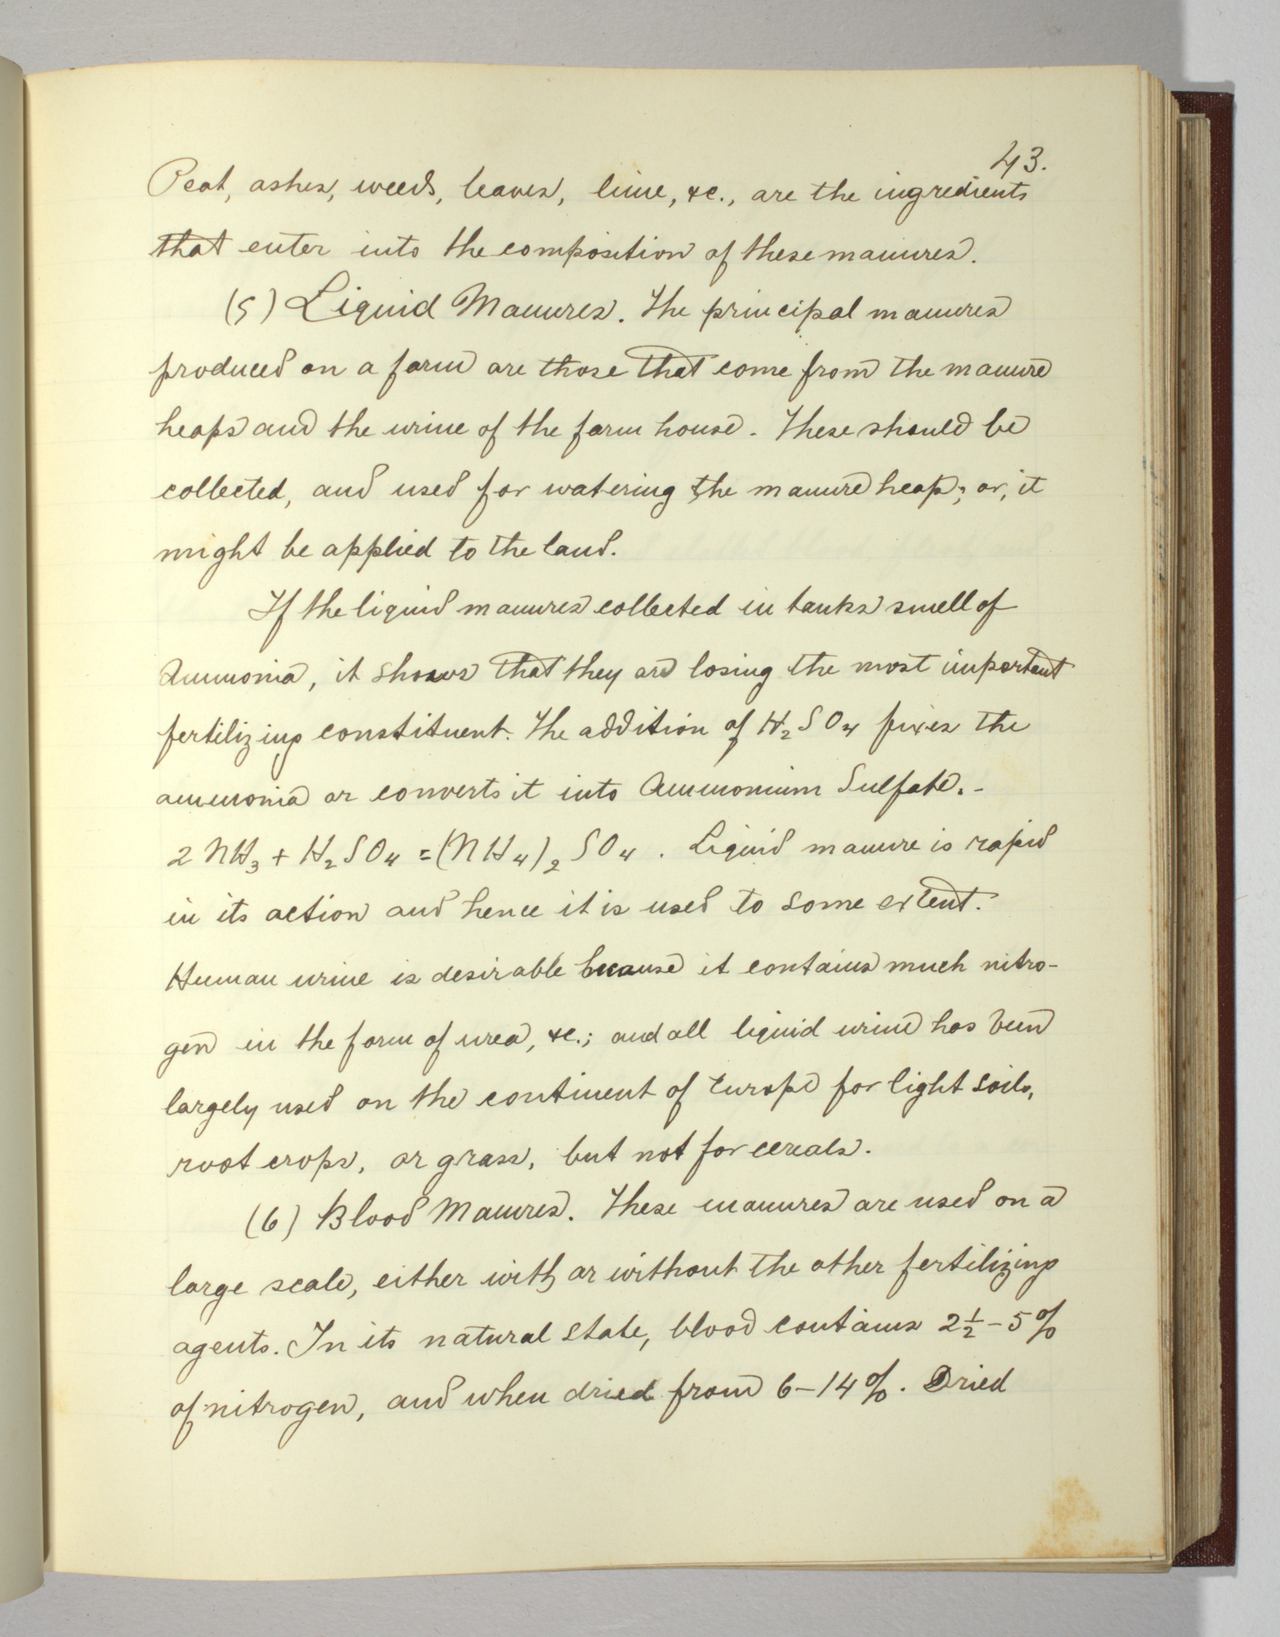 43.
Peat, ashes, weeds, leaves, lime, &c., are the ingredients
that enter into the composition of these manures.
(5) Liquid Manures. The principal manures
produced on a farm are those that come from the manure
heaps and the urine of the farm house. These should be
collected, and used for watering the manure heap; or, it
might be applied to the land.
If the liquid manures collected in tanks smell of
Ammonia, it shows that they are losing the most important
fertilizing constituent. The addition of H₂SO₄ fixes the
ammonia or converts it into Ammonium Sulfate.-
2 NH₃ + H₂SO₄ = (NH₄)₂ SO₄. Liquid manure is rapid
in its action and hence it is used to some extent.
Human urine is desirable because it contains much nitro-
gen in the form of urea, &c.; and all liquid urine has been
largely used on the continent of Europe for light soils,
root crops, or grass, but not for cereals.
(6) Blood Manures. These manures are used on a
large scale, either with or without the other fertilizing
agents. In its natural state, blood contains 2½-5%
of nitrogen, and when dried from 6-14%. Dried